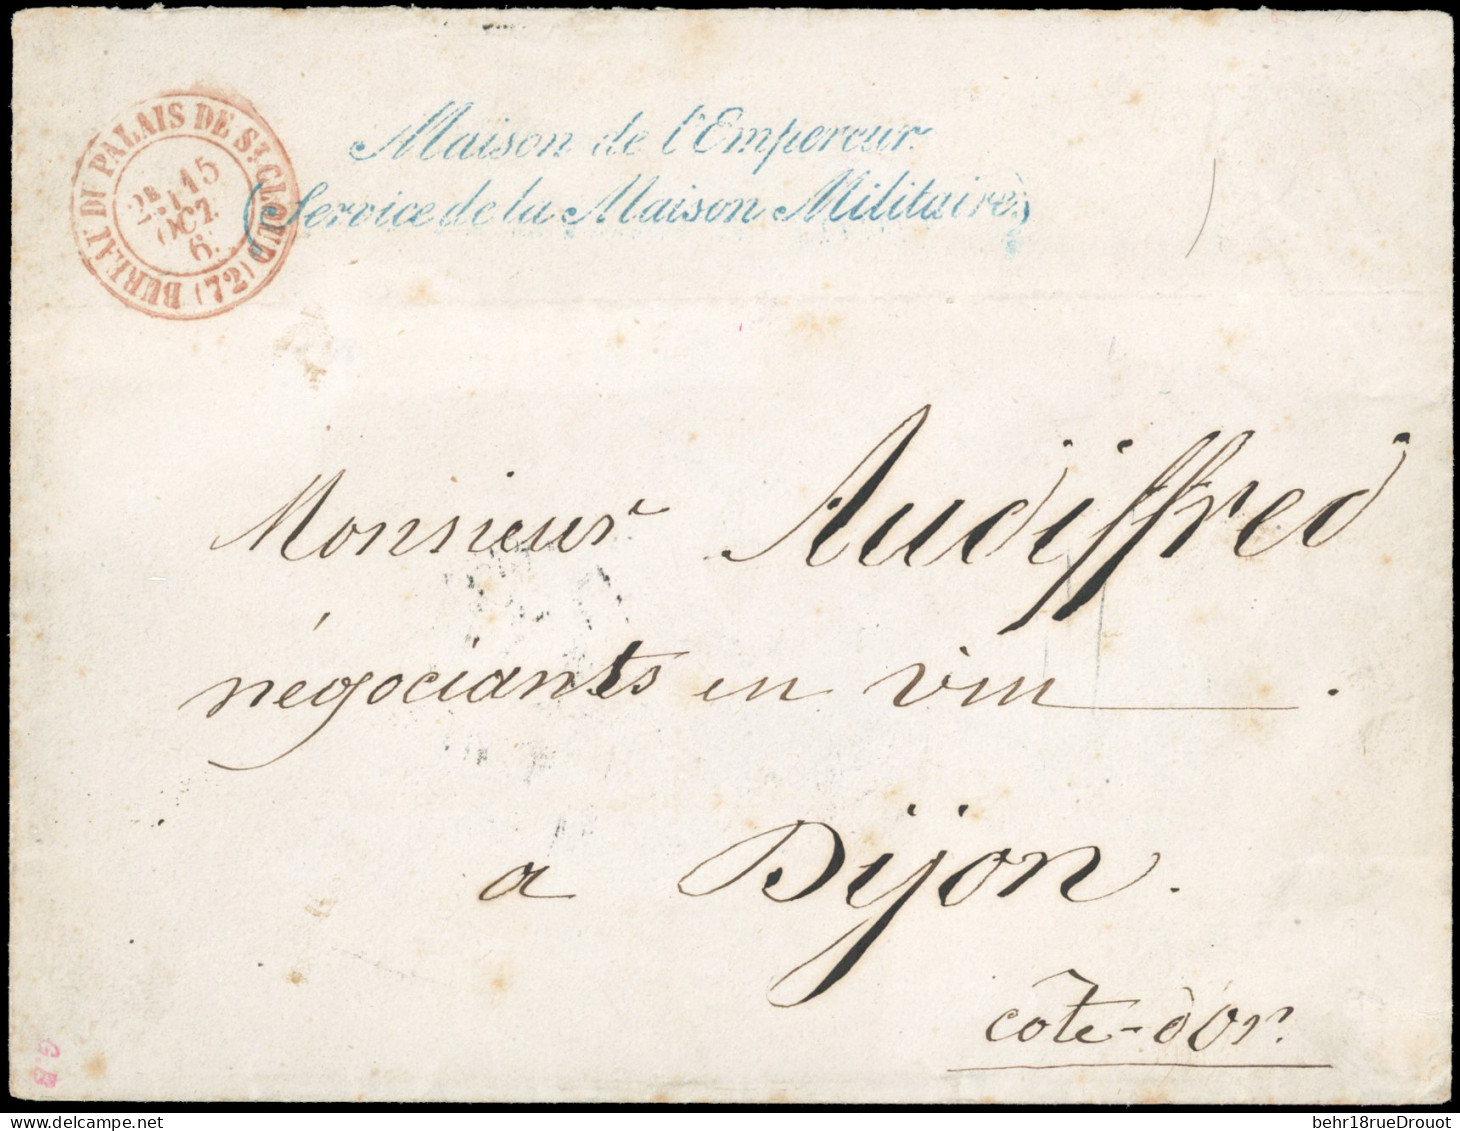 BUREAU DU PALAIS DE St CLOUD (72)
2E
15
OCT.
6
Maison de l'Empereur
(Service de la Maison Militaire)
Monsieur Audiffred
négociants en vin.
a Dijon.
côte-d'or.
G.B
behr18rueDrouot